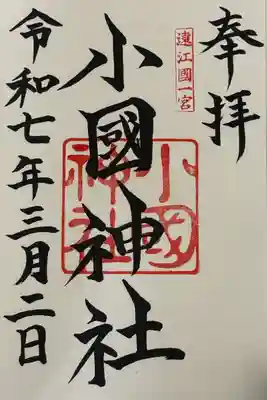 奉拝
遠江國一宮
小國神社
小國神社
令和七年三月二日